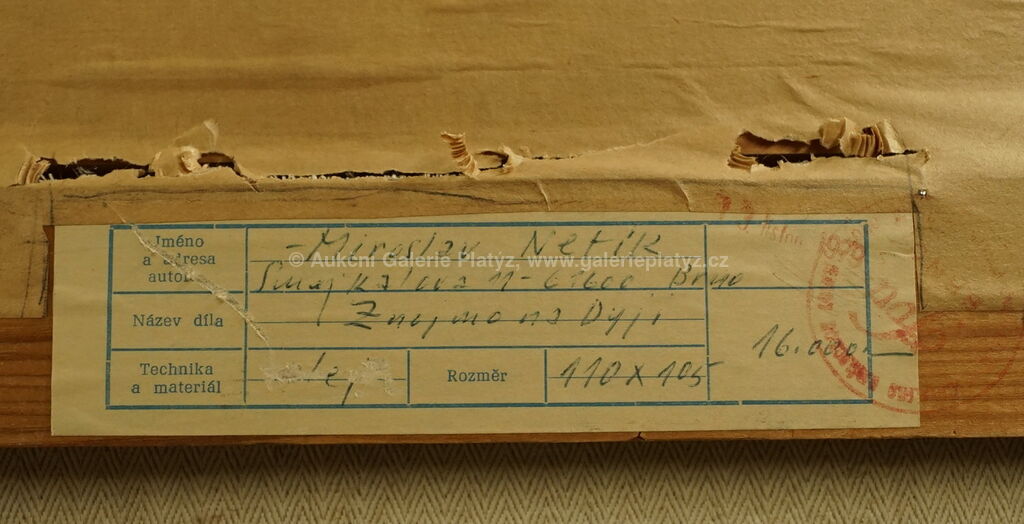 Jméno
a adresa
autora
Miroslav Netík
Šmejkalova 11 - 61600 Brno
© Aukční Galerie Platýz, www.galerieplatyz.cz
Název díla
Znojmo na Dyji
16.000
Technika
a materiál
olej
Rozměr
110 x 105